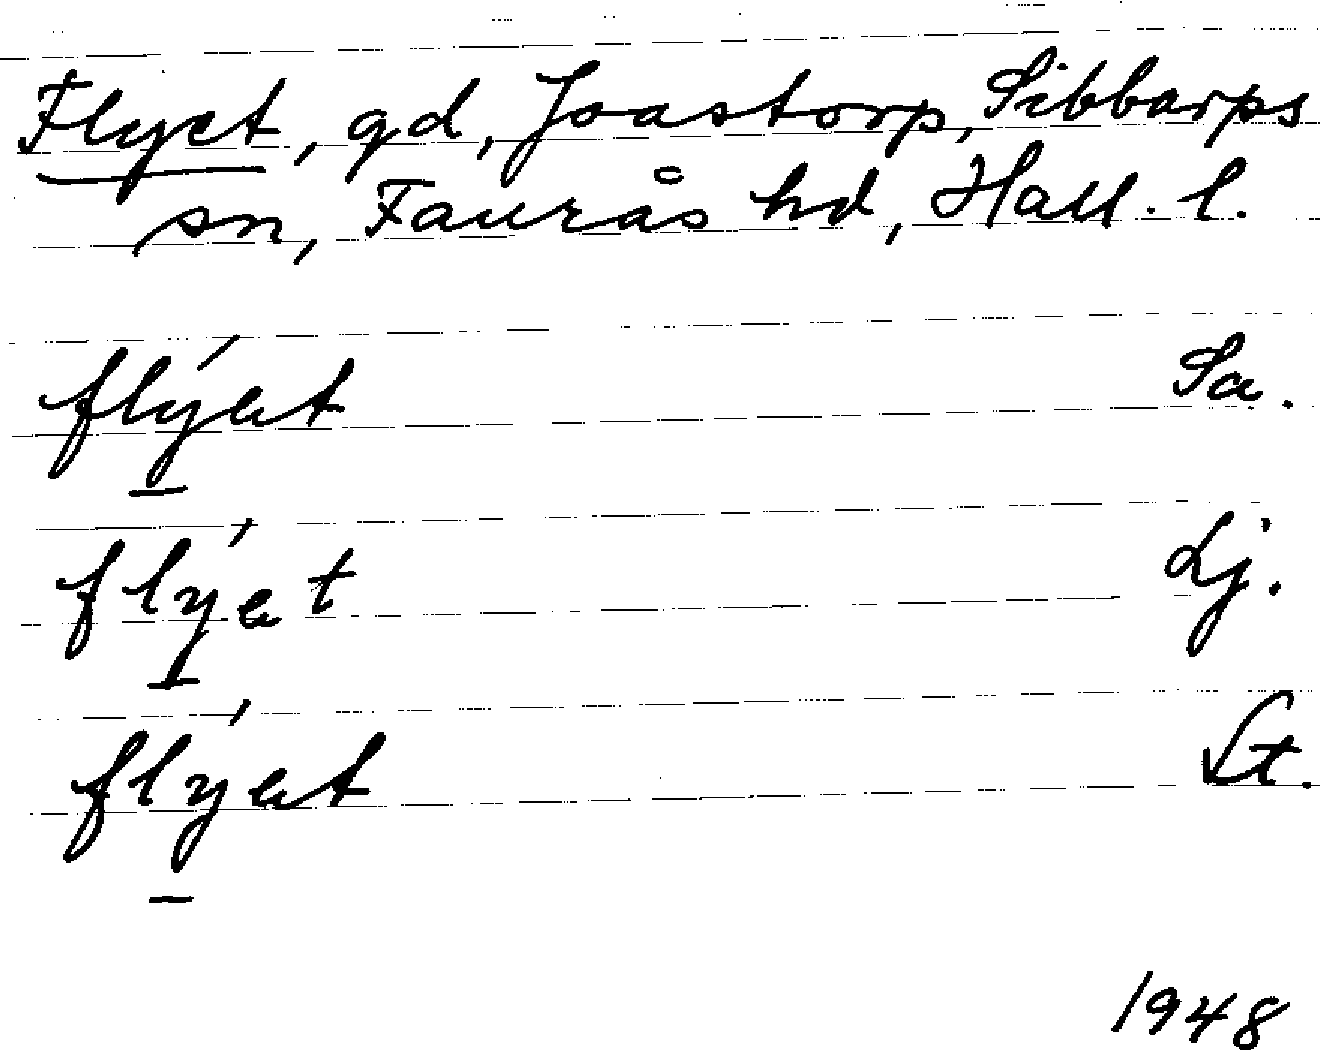 Flyet, gd, Joastorp, Sibbarps
sn, Faurås hd, Hall. l.
flýət Sa.
flýət Lj.
flýət St.
1948